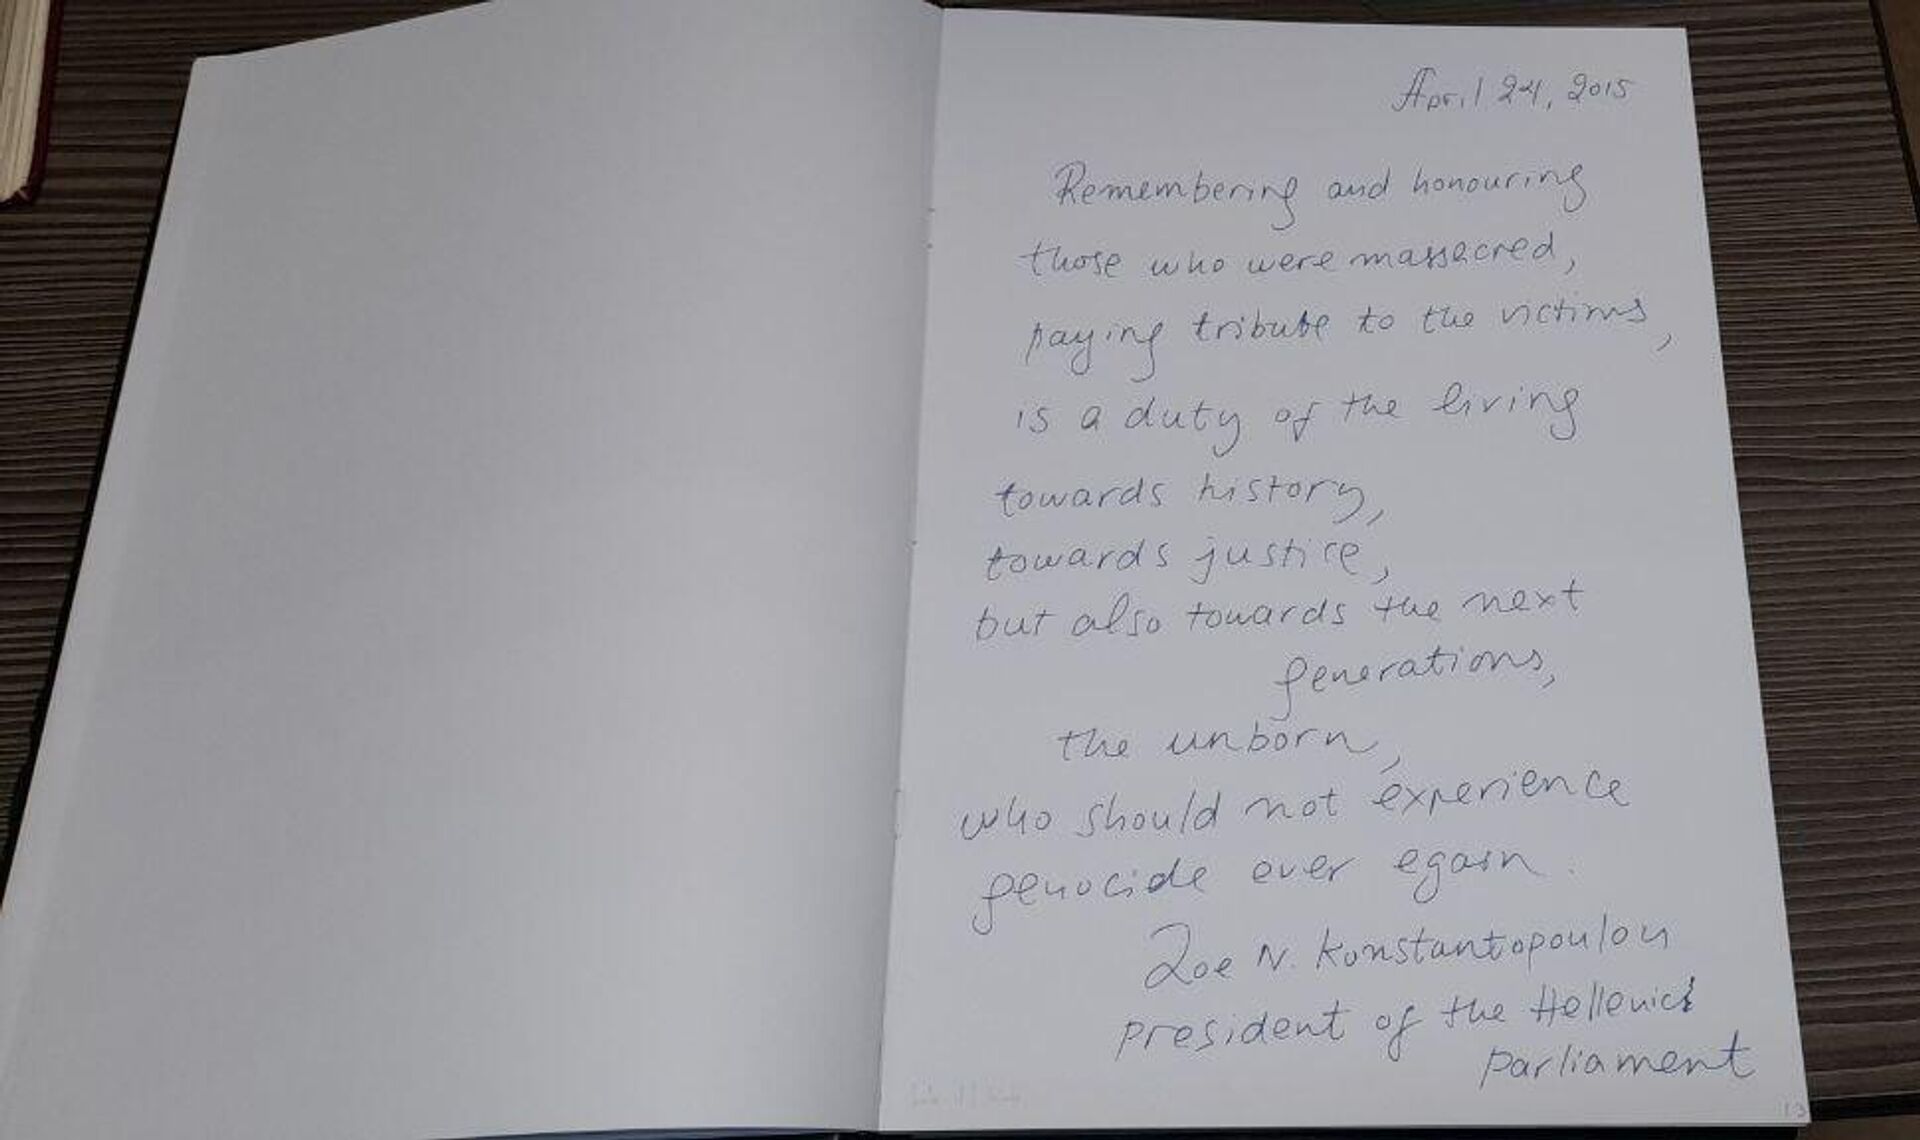 April 24, 2015
Remembering and honouring
those who were massacred,
paying tribute to the victims,
is a duty of the living
towards history,
towards justice,
but also towards the next
generations,
the unborn,
who should not experience
genocide ever egain.
Zoe N. Konstantopoulou
President of the Hellenic
Parliament
13